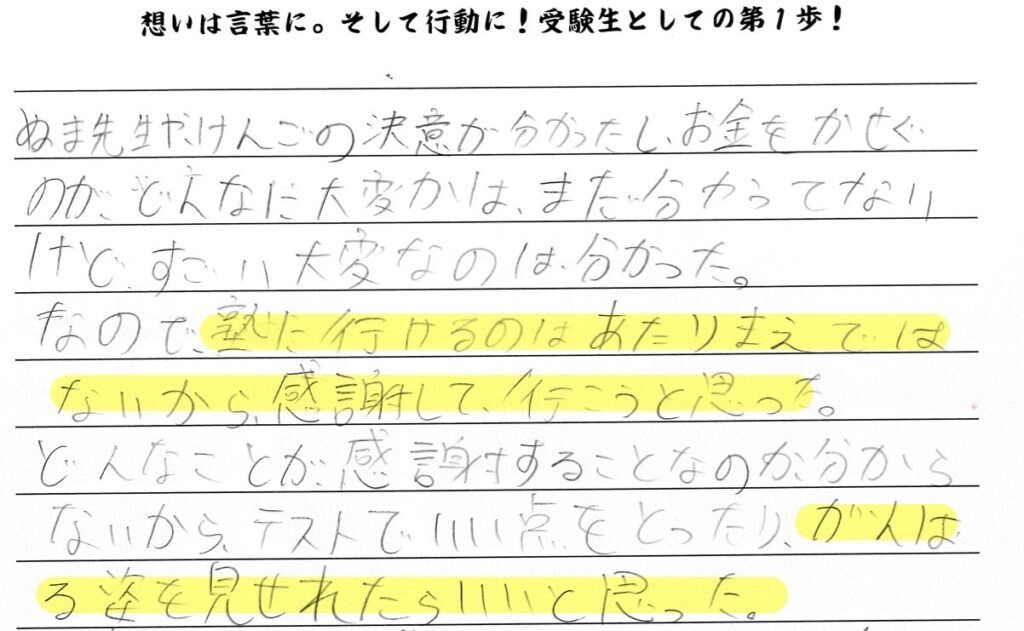 想いは言葉に。そして行動に！受験生としての第1歩！
ぬま先生や、けんごの決意が分かったし、お金をかせぐ
のが、どんなに大変かは、まだ分かってない
けど、すごい大変なのは、分かった。
なので、塾に行けるのはあたりまえでは
ないから、感謝して、行こうと思った。
どんなことが、感謝することなのか、分から
ないから、テストでいい点をとったり、がんば
る姿を見せれたらいいと思った。